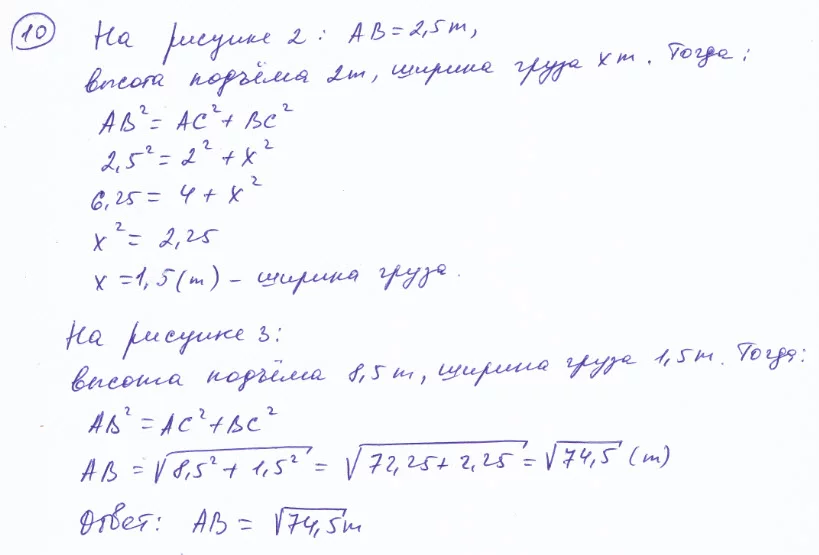 10 На рисунке 2: AB = 2,5 m,
высота подъёма 2m, ширина груза x m. Тогда:
AB² = AC² + BC²
2,5² = 2² + x²
6,25 = 4 + x²
x² = 2,25
x = 1,5 (m) – ширина груза.
На рисунке 3:
высота подъёма 8,5 m, ширина груза 1,5 m. Тогда:
AB² = AC² + BC²
AB = √(8,5² + 1,5²) = √(72,25 + 2,25) = √74,5 (m)
Ответ: AB = √74,5 m